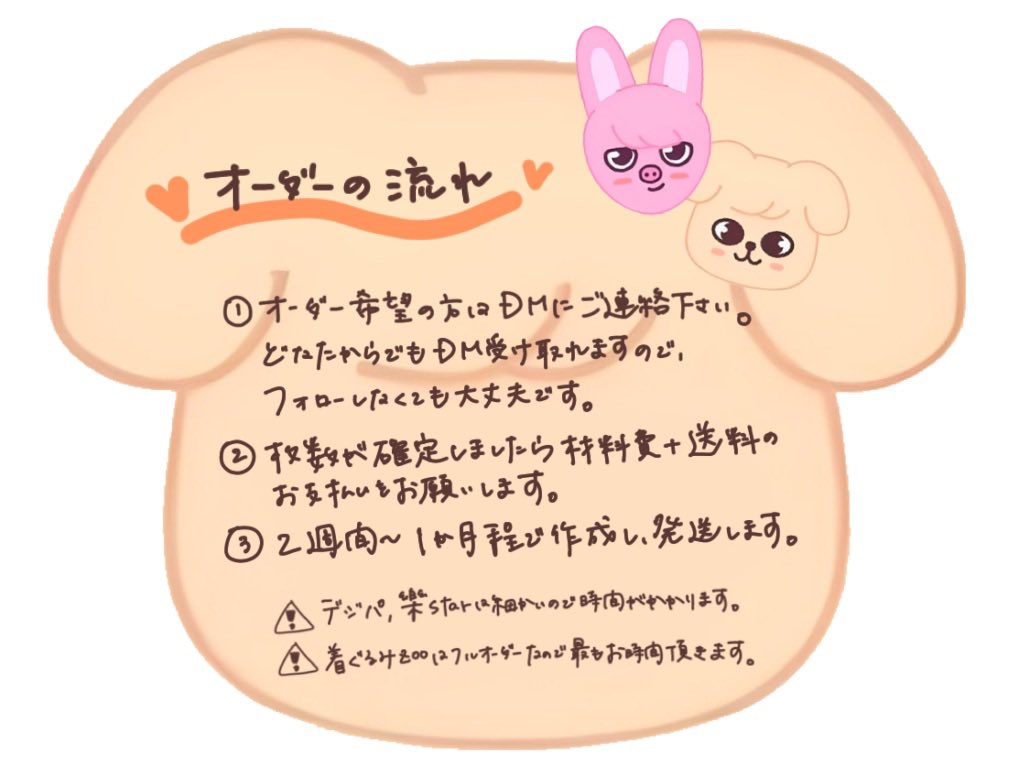 オーダーの流れ
① オーダー希望の方はDMにご連絡下さい。
どなたからでもDM受け取れますので、
フォローしなくても大丈夫です。
② 枚数が確定しましたら材料費+送料の
お支払いをお願いします。
③ 2週間〜1か月程で作成し、発送します。
デジパ,樂starは細かいので時間がかかります。
着ぐるみzooはフルオーダーなので最もお時間頂きます。